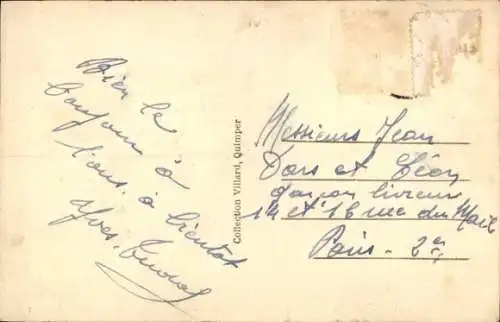 Bien le
bonjour à
tous. à bientot
Yves.
Collection Villard, Quimper
Messieurs Jean
Dors et Léon
garçon livreur
14 et 16 rue du Mail
Paris - 2e